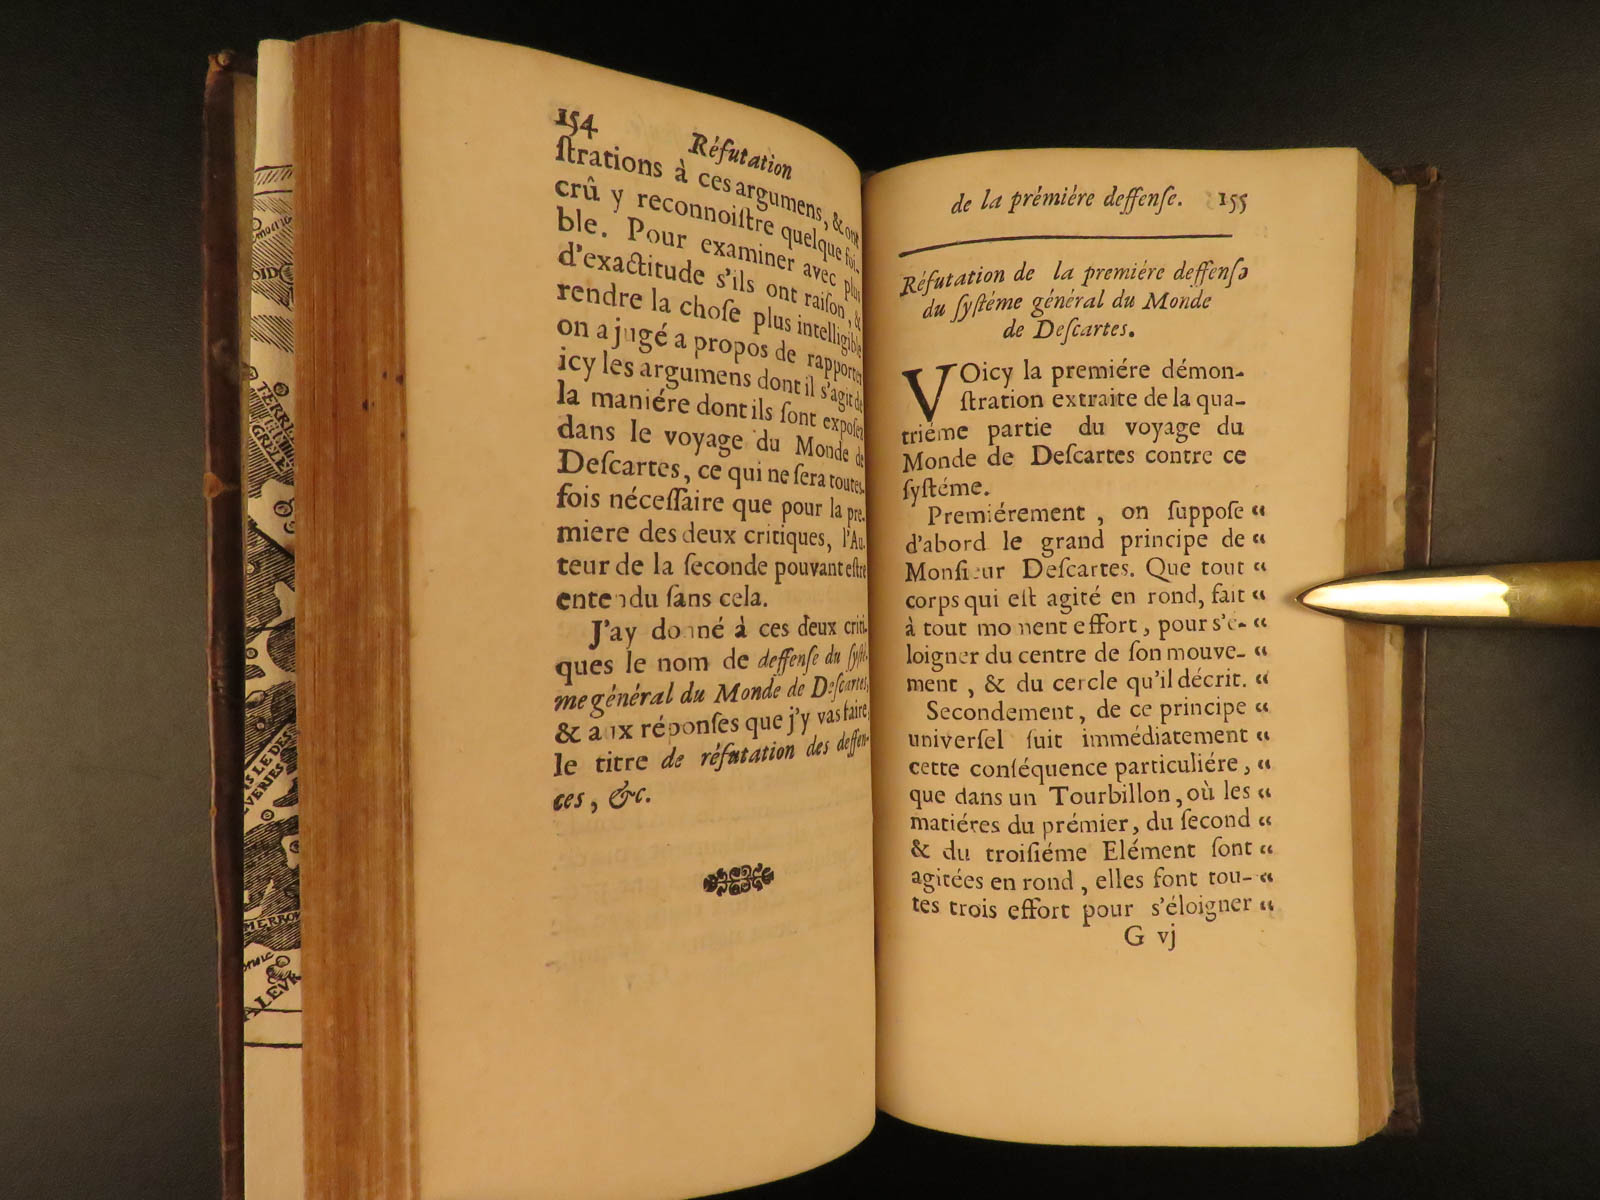 154
Réfutation
ſtrations à ces argumens, & ont
crû y reconnoiſtre quelque foi-
ble. Pour examiner avec plus
d'exactitude s'ils ont raiſon, &
rendre la choſe plus intelligible
on a jugé a propos de rapporter
icy les argumens dont il s'agit de
la maniére dont ils ſont expoſez
dans le voyage du Monde de
Deſcartes, ce qui ne ſera toutes-
fois néceſſaire que pour la pre-
miere des deux critiques, l'Au-
teur de la ſeconde pouvant eſtre
entendu ſans cela.
J'ay donné à ces deux criti-
ques le nom de deffenſe du ſyſté-
me général du Monde de Deſcartes,
& aux réponſes que j'y vas faire,
le titre de réfutation des deffen-
ces, &c.
de la prémiére deffenſe. 155
Réfutation de la premiére deffenſe
du ſyſtéme général du Monde
de Deſcartes.
VOicy la premiére démon-
ſtration extraite de la qua-
triéme partie du voyage du
Monde de Deſcartes contre ce
ſyſtéme.
Premiérement, on ſuppoſe “
d'abord le grand principe de “
Monſieur Deſcartes. Que tout “
corps qui eſt agité en rond, fait “
à tout moment effort, pour s'é- “
loigner du centre de ſon mouve- “
ment, & du cercle qu'il décrit. “
Secondement, de ce principe “
univerſel ſuit immédiatement “
cette conſéquence particuliére, “
que dans un Tourbillon, où les “
matiéres du prémier, du ſecond “
& du troiſiéme Elément ſont “
agitées en rond, elles ſont tou- “
tes trois effort pour s'éloigner “
G vj
TERRE
GRIELE
MERRO